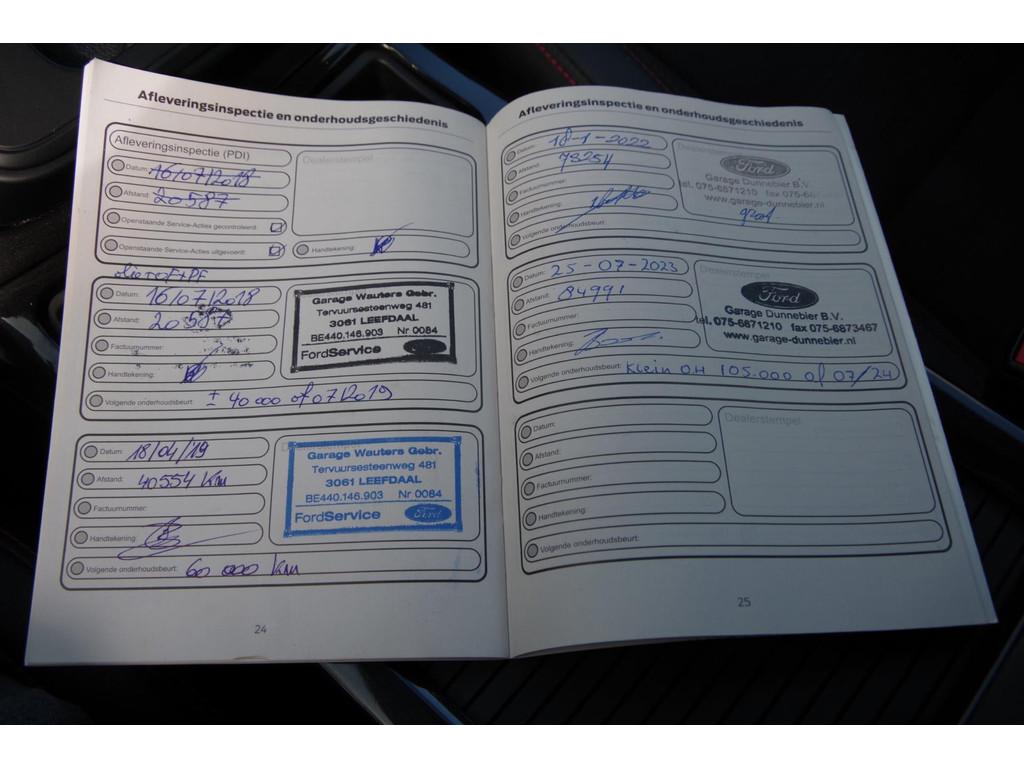 Afleveringsinspectie en onderhoudsgeschiedenis
Afleveringsinspectie (PDI)
Dealerstempel
Datum: 16/07/2018
Afstand: 20587
Openstaande Service-Acties gecontroleerd:
Openstaande Service-Acties uitgevoerd:
Handtekening:
Datum: 16/07/2018
Afstand: 20587
Factuurnummer:
Handtekening:
Volgende onderhoudsbeurt: ± 40 000 of 07/2019
Garage Wauters Gebr.
Tervuursesteenweg 481
3061 LEEFDAAL
BE440.146.903 Nr 0084
FordService Ford
Datum: 18/04/19
Afstand: 40554 Km
Factuurnummer:
Handtekening:
Volgende onderhoudsbeurt: 60 000 Km
Garage Wauters Gebr.
Tervuursesteenweg 481
3061 LEEFDAAL
BE440.146.903 Nr 0084
FordService Ford
24
Afleveringsinspectie en onderhoudsgeschiedenis
Datum: 18-1-2022
Afstand: 73254
Factuurnummer:
Handtekening:
Volgende onderhoudsbeurt:
Dealerstempel
Ford
Garage Dunnebier B.V.
tel. 075-6871210 fax 075-
www.garage-dunnebier.nl
Datum: 25-07-2023
Afstand: 84991
Factuurnummer:
Handtekening:
Volgende onderhoudsbeurt: Klein O.H 105.000 of 07/24
Dealerstempel
Ford
Garage Dunnebier B.V.
tel. 075-6871210 fax 075-6873467
www.garage-dunnebier.nl
Datum:
Afstand:
Factuurnummer:
Handtekening:
Volgende onderhoudsbeurt:
Dealerstempel
25